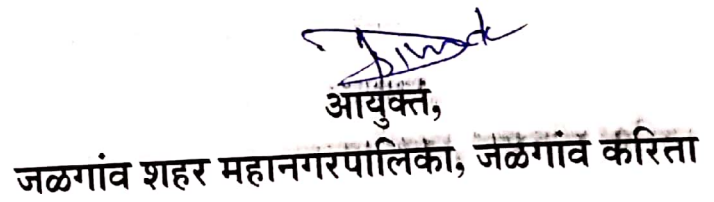 आयुक्त,
जळगांव शहर महानगरपालिका, जळगांव करिता